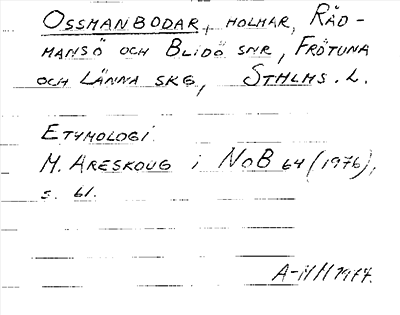 OSSMANBODAR, HOLMAR, RÅD-
MANSÖ OCH BLIDÖ SNR, FRÖTUNA
OCH LÄNNA SKG, STHLMS. L.
ETYMOLOGI
M. ARESKOUG i NoB 64 (1976),
s. 61.